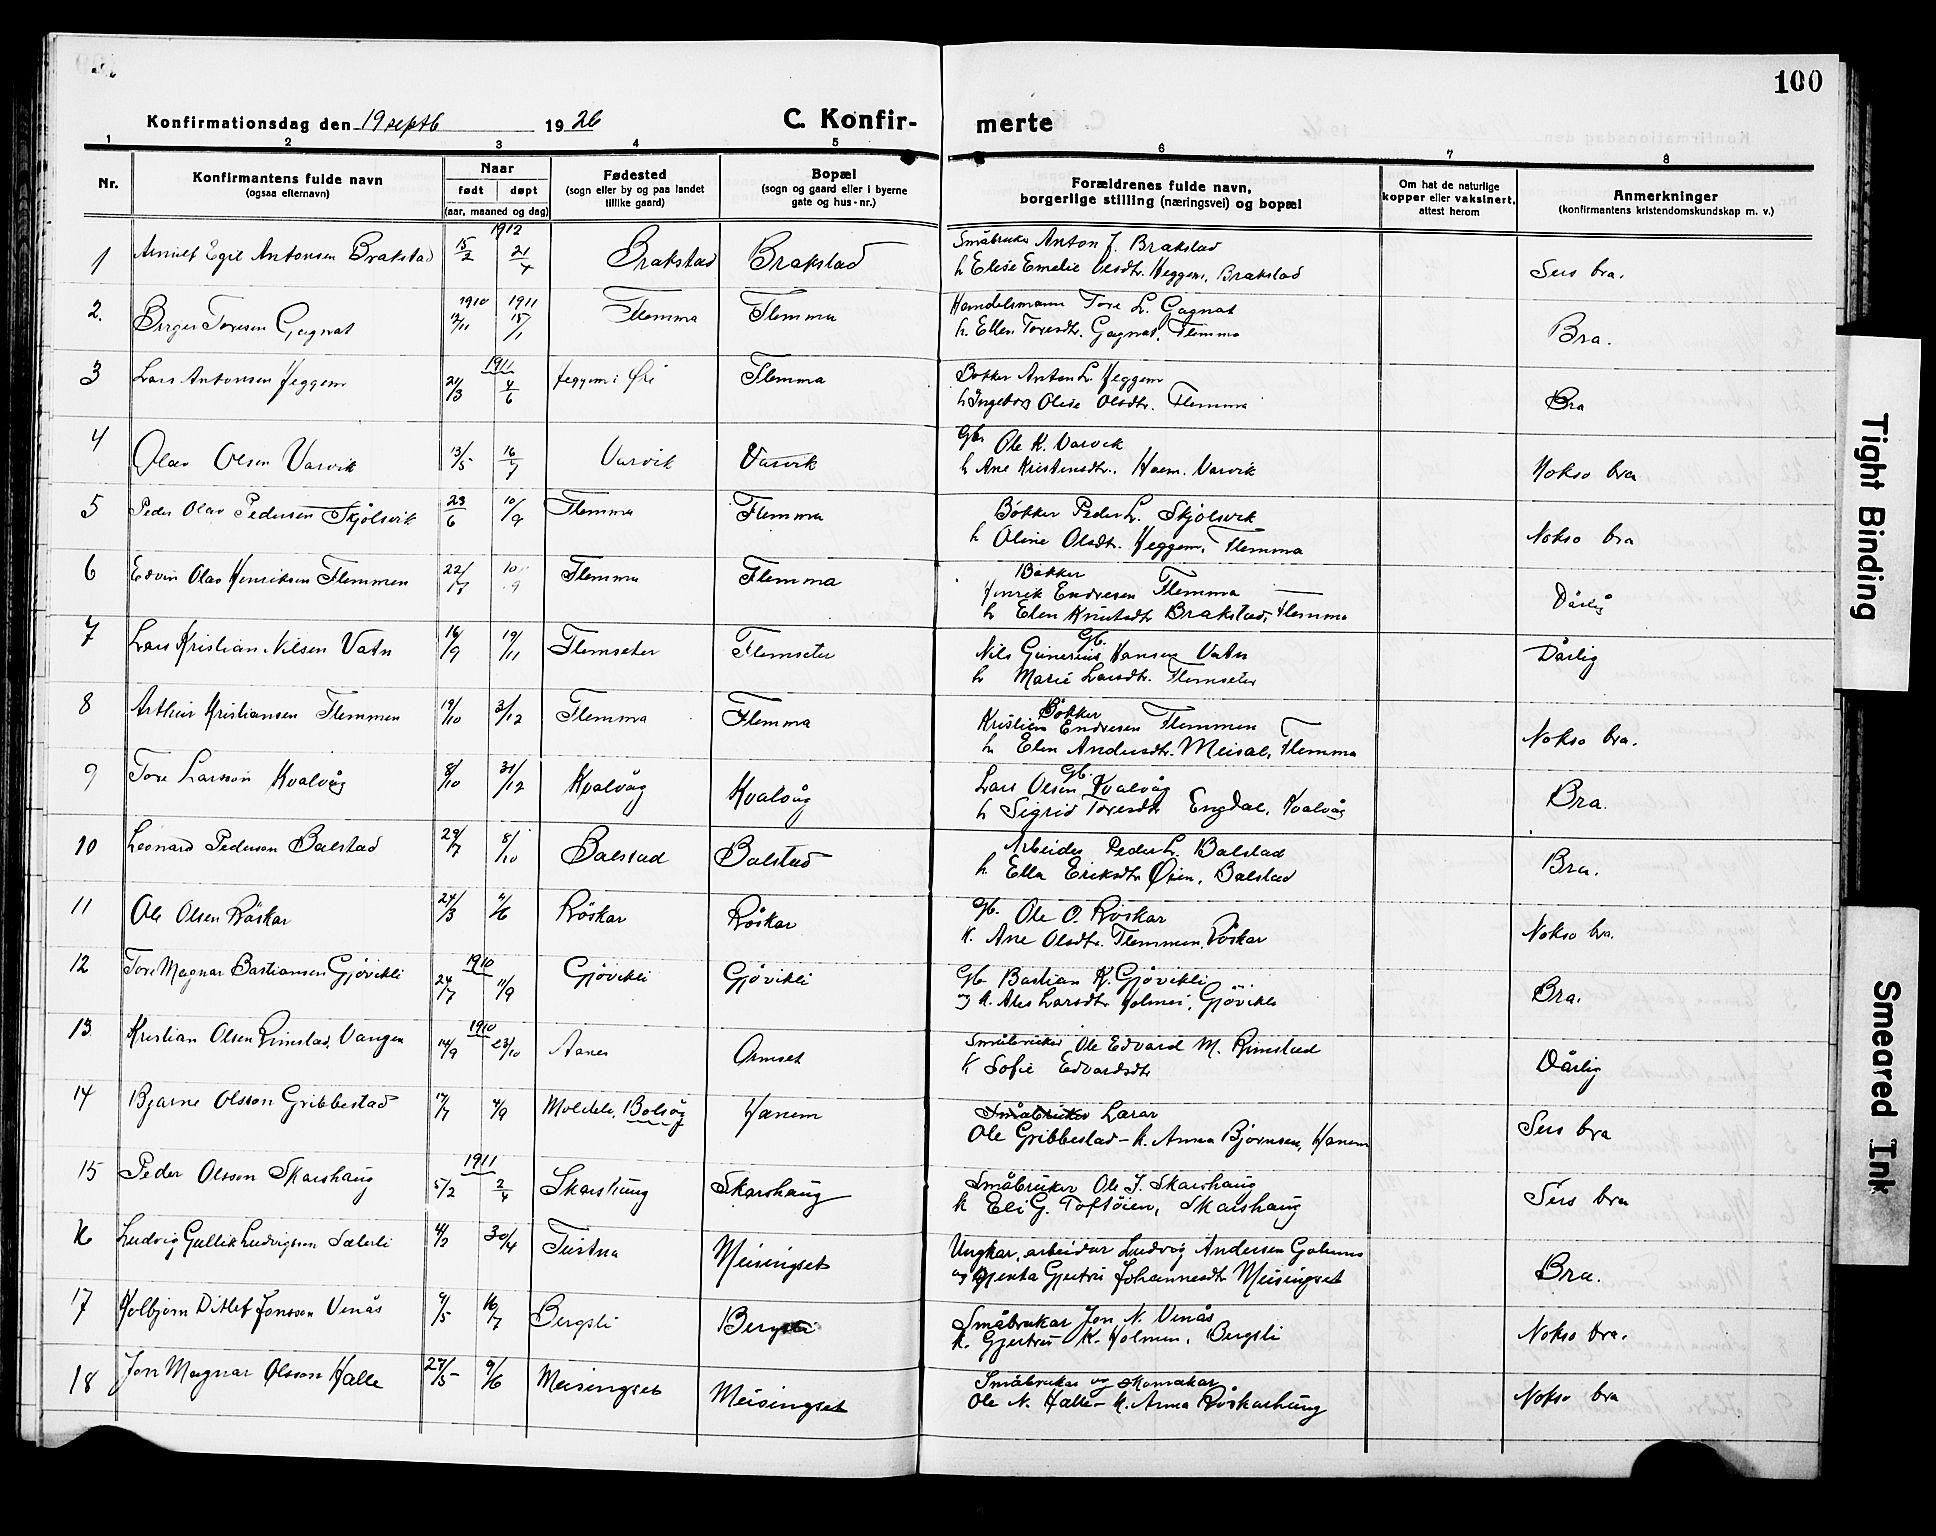 100
Konfirmationsdag den 19 septb 1926 C. Konfirmerte
1 2 3 4 5 6 7 8
Nr. Konfirmantens fulde navn (ogsaa efternavn) Naar født døpt (aar, maaned og dag) Fødested (sogn eller by og paa landet tillike gaard) Bopæl (sogn og gaard eller i byerne gate og hus-nr.) Forældrenes fulde navn, borgerlige stilling (næringsvei) og bopæl Om hat de naturlige kopper eller vaksinert, attest herom Anmerkninger (konfirmantens kristendomskundskap m. v.)
1912
1 Arnulf Egil Antonsen Brakstad 15/2 21/4 Brakstad Brakstad Småbruker Anton J. Brakstad
h Elise Emelie Olsdtr. Heggem, Brakstad Sers bra.
1910 1911
2. Birger Toresen Gagnat 12/11 15/1 Flemma Flemma Handelsmann Tore L. Gagnat
h. Ellen Toresdtr. Gagnat, Flemma Bra.
1911
3 Lars Antonsen Heggem 21/3 4/6 Heggem i Øre Flemma Bøkker Anton L. Heggem
h Ingeborg Olise Olsdtr. Flemma Bra
4 Olav Olsen Varvik 13/5 16/7 Varvik Varvik Gb. Ole K. Varvik
h Ane Kristensdtr. Haem. Varvik Nokso bra
5 Peder Olav Pedersen Skjølsvik 23/6 10/9 Flemma Flemma Bøkker Peder L. Skjølsvik
h Oline Olsdtr. Heggem, Flemma Nokso bra
6 Edvin Olav Henriksen Flemmen 22/7 10/9 Flemma Flemma Bøkker
Henrik Endresen Flemma
h Elen Knutsdtr Brakstad, Flemma Dårlig
7 Lars Kristian Nilsen Vatn 16/9 19/11 Flemseter Flemseter Gb.
Nils Gunerius Hansen Vatn
h Marie Larsdtr. Flemseter Dårlig
8 Arthur Kristiansen Flemmen 19/10 3/12 Flemma Flemma Bøkker
Kristian Endresen Flemmen
h Elen Andersdtr. Meisal, Flemma Nokso bra.
9 Tore Larsson Kvalvåg 8/10 31/12 Kvalvåg Kvalvåg Gb.
Lars Olsen Kvalvåg
h Sigrid Toresdtr Engdal, Kvalvåg Bra.
10 Leonard Pedersen Balstad 29/7 8/10 Balstad Balstad Arbeider Peder L. Balstad
h Ella Eriksdtr Øien, Balstad Bra.
11 Ole Olsen Röskar 24/3 4/6 Röskar Röskar Gb. Ole O. Röskar
k. Ane Olsdtr. Flemmen, Röskar Nokso bra.
1910
12 Tore Magnar Bastiansen Gjøvikli 24/7 11/9 Gjøvikli Gjøvikli Gb Bastian K. Gjøvikli
og k. Ales Larsdtr Holmei, Gjøvikli Bra.
1910
13 Kristian Olsen Rimstad, Vangen 14/9 23/10 Aanes Ormset Småbruker Ole Edvard M. Rimstad
k Sofie Edvardsdtr Dårlig
14 Bjarne Olsson Gribbestad 17/7 4/9 Moldeli, Bolsøy Hanem Småbruker Lærar
Ole Gribbestad - k. Anna Bjørnsen, Hanem Sers bra
1911
15 Peder Olsson Skarshaug 5/2 2/4 Skarshaug Skarshaug Småbruker Ole J. Skarshaug
k Eli G. Toftøien, Skarshaug Sers bra
16 Ludvig Gullik Ludvigsson Sæterli 4/2 30/4 Tustna Meisingset Ungkar, arbeidar Ludvig Andersen Golmns
og gjenta Gjertru Johannesdtr Meisingset Bra.
17 Kolbjørn Ditlef Jonsson Venås 4/5 16/7 Bergsli Bergsli Småbrukar Jon N. Venås
k. Gjertru K. Holmen, Bergsli Nokso bra.
18 Jon Magnar Olsson Halle 27/5 9/6 Meisingset Meisingset Småbruker og skomakar
Ole N. Halle - k. Anna Röskarhaug Nokso bra
Tight Binding
Smeared Ink